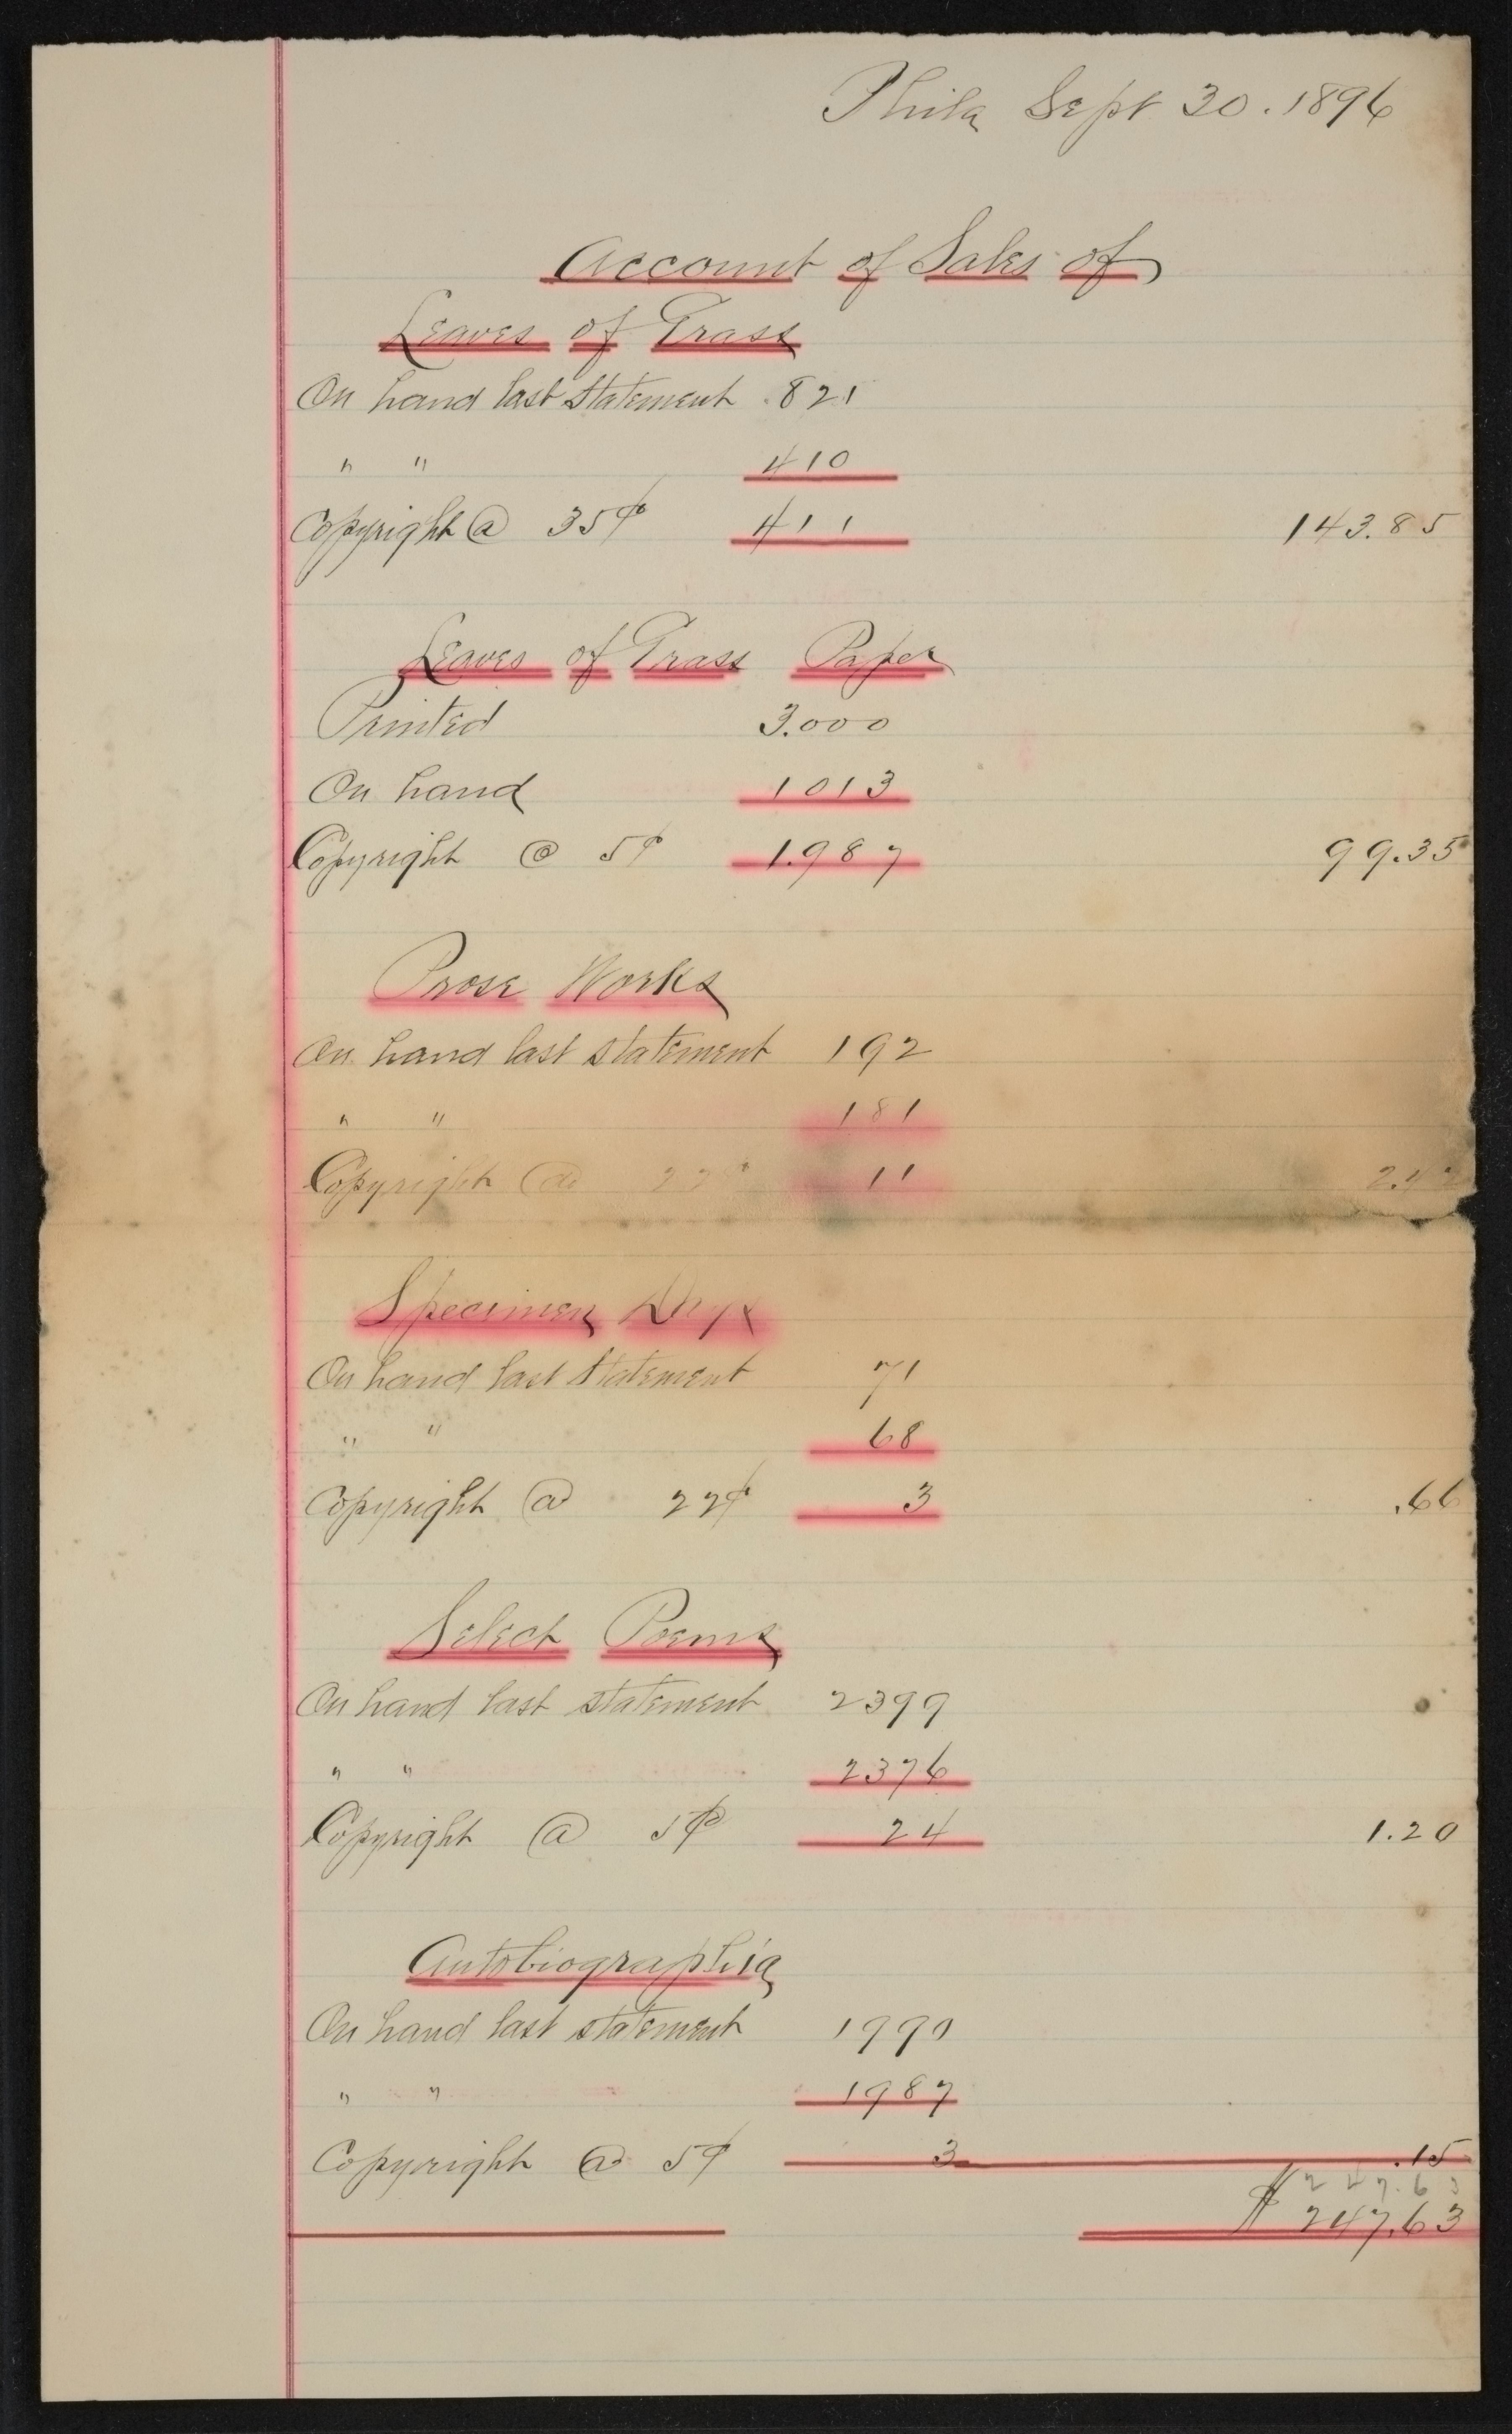 Phila Sept 30. 1896
Account of Sales of
Leaves of Grass
On hand last statement 821
" " 410
Copyright @ 35¢ 411 143.85
Leaves of Grass Paper
Printed 3.000
On hand 1013
Copyright @ 5¢ 1.987 99.35
Prose Works
On hand last statement 192
" " 181
Copyright @ 22¢ 11 2.42
Specimen Days
On hand last statement 71
" " 68
Copyright @ 22¢ 3 .66
Select Poems
On hand last statement 2399
" " 2376
Copyright @ 5¢ 24 1.20
Autobiographia
On hand last statement 1990
" " 1987
Copyright @ 5¢ 3 .15
247.63
$ 247.63